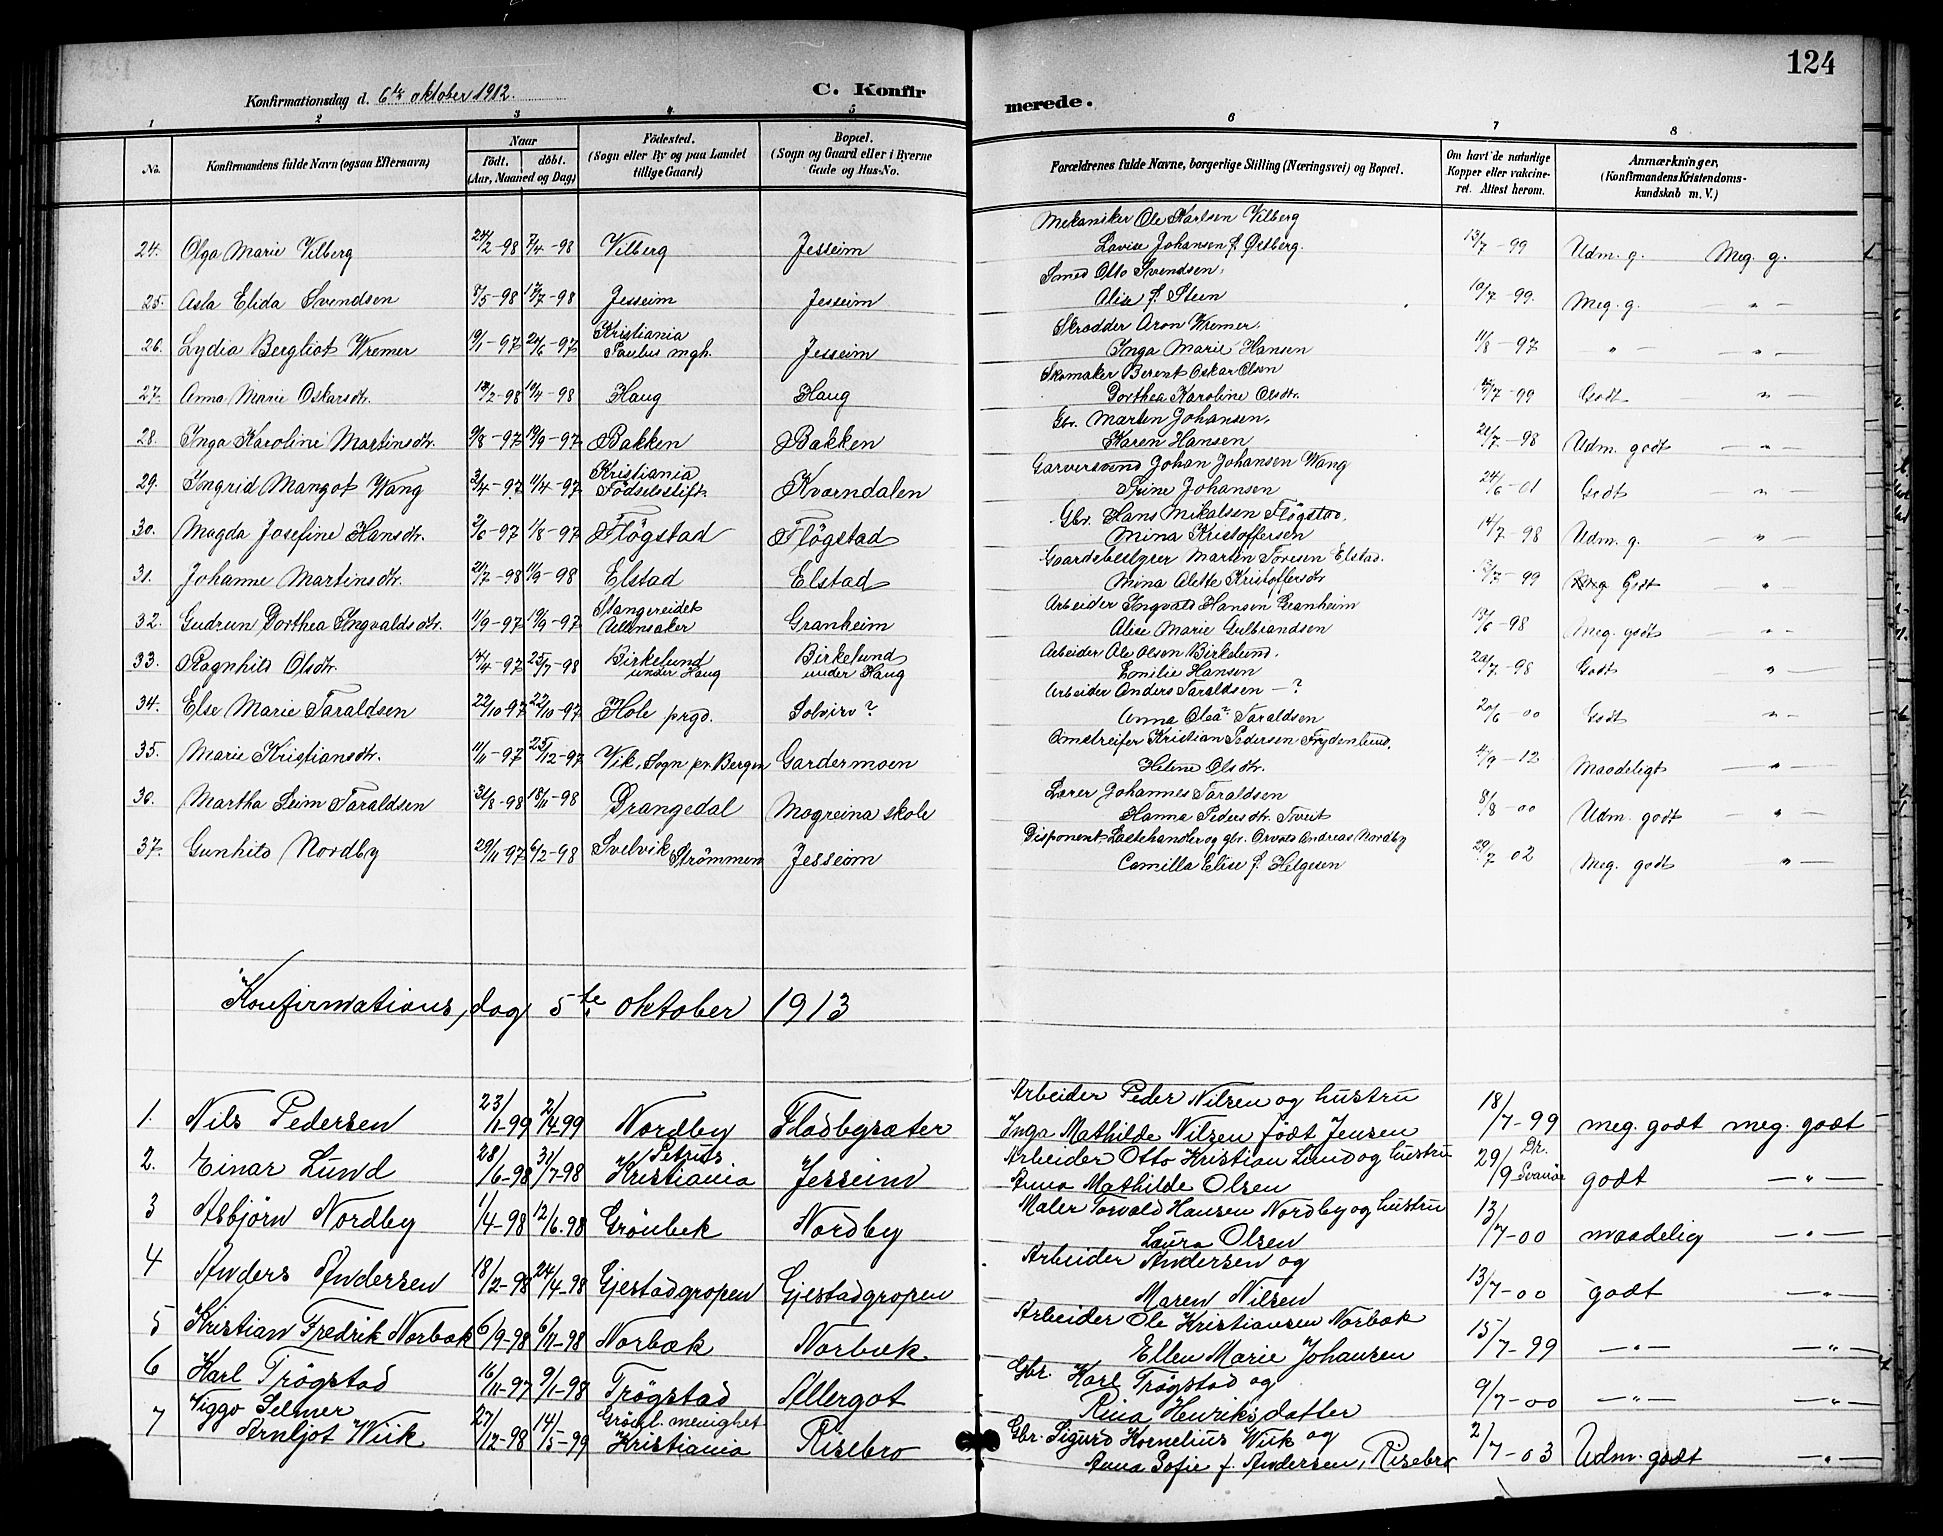 124
Konfirmationsdag d. 6te oktober 1912.
C. Konfirmerede.
1 2 3 4 5 6 7 8
No.
Konfirmandens fulde Navn (ogsaa Efternavn)
Naar
födt. döbt.
(Aar, Maaned og Dag)
Födested.
(Sogn eller By og paa Landet
tillige Gaard)
Bopæl.
(Sogn og Gaard eller i Byerne
Gade og Hus-No.
Forældrenes fulde Navne, borgerlige Stilling (Næringsvei) og Bopæl.
Om havt de naturlige
Kopper eller vakcine-
ret. Attest herom.
Anmærkninger,
(Konfirmandens Kristendoms-
kundskab m. V.)
Mekaniker Ole Karlsen Vilberg
24. Olga Marie Vilberg 24/2-98 7/4-98 Vilberg Jesseim Lovise Johansen f. Østberg. 13/7-99 Udm. g. Meg. g.
Smed Otto Svendsen,
25. Asla Elida Svendsen 8/5-98 17/7-98 Jesseim Jesseim Alise f. Stein 10/7-99. Meg. g. — " —
Skrædder Aron Wremer,
26. Lydia Bergliot Wremer 19/1-97 20/6-97 Kristiania Paulus mgh. Jesseim Inga Marie Hansen 11/8-97 " — — " —
Skomaker Berent Oskar Olsen
27. Anna Marie Oskarsdtr. 18/2-98 10/4-98 Haug Haug Dorthea Karoline Olsdtr. /7-99 Godt — " —
Gbr. Martin Johansen,
28. Inga Karoline Martinsdtr. 9/8-97 19/9-97 Bakken Bakken Karen Hansen 21/7-98 Udm. godt — " —
Garversvend Johan Johansen Wang
29. Ingrid Margot Wang 3/4-97 11/4-97 Kristiania Födselsstift. Kverndalen Trine Johansen 24/6-01 Godt — " —
Gbr. Hans Mikalsen Flögstad,
30. Magda Josefine Hansdtr. 2/6-97 1/8-97 Flögstad Flögstad Mina Kristoffersen 14/7-98 Udm. g. — " —
Gaardsbestyrer Martin Toresen Elstad.
31. Johanne Martinsdtr. 21/7-98 11/9-98 Elstad Elstad Mina Alette Kristoffersdtr /7-99 Godt "
Arbeider Ingvald Hansen Granheim
32. Gudrun Dorthea Ingvaldsdtr. 11/9-97 19/9-97 Stangereidet Ullensaker Granheim Alise Marie Gulbrandsen 15/6-98 Meg. godt — " —
Arbeider Ole Olsen Birkelund.
33. Ragnhild Olsdtr. 14/4-97 25/7-98 Birkelund under Haug Birkelund under Haug Emilie Hansen 20/7-98 Godt — " —
Arbeider Anders Taraldsen — ?
34. Else Marie Taraldsen 22/10-97 22/10-97 Hole prgd. Solviro? Anna Olea? Taraldsen 20/6-00 Godt " —
Omstreifer Kristian Pedersen Frydenlund,
35. Marie Kristiansdtr. 11/11-97 25/12-97 Vik, Sogn pr. Bergen Gardermoen Helene Olsdtr. 4/9-12 Maadeligt — " —
Lærer Johannes Taraldsen
36. Martha Leim Taraldsen 31/8-98 18/11-98 Drangedal Mogreina skole Hanna Pedersdtr. Tveit 8/8-00 Udm. godt — " —
Disponent, Lastehandler og gbr. Orvald Andreas Nordby
37. Gunhild Nordby 29/11-97 6/2-98 Svelvik Strömmen Jesseim Camilla Elise f. Helgesen 29/7 02 Meg. godt " —
Konfirmations,dag 5te, oktober 1913
Arbeider Peder Nilsen og hustru
1. Nils Pedersen 23/1-99 2/4-99 Nordby Flodbysæter Inga Mathilde Nilsen födt Jensen 18/7-99 meg. godt meg. godt
Arbeider Otto Kristian Lund og hustru
2. Einar Lund 28/6-98 31/7-98 Petrus Kristiania Jesseim Anna Mathilde Olsen 29/9 Dr. Svanöe godt — " —
Maler Torvald Hansen Nordby og hustru
3 Asbjörn Nordby 1/4-98 12/6.98 Grönbek Nordby Laura Olsen 13/7-00 maadelig — " —
Arbeider Andersen og
4 Anders Andersen 18/2-98 24/4-98 Gjestadgropen Gjestadgropen Maren Nilsen 13/7-00 godt — " —
Arbeider Ole Kristiansen Norbæk
5 Kristian Fredrik Norbæk 6/9-98 6/11-98 Norbæk Norbæk Ellen Marie Johansen 15/7-99 — " — — " —
Gbr. Karl Trögstad og
6 Karl Trögstad 16/11-97 9/1-98 Trögstad Allergot Rina Henriksdatter 9/7-00 — " — — " —
Gbr. Sigurd Kornelius Wiik og
7 Viggo Selmer Arnljot Wiik 27/12-98 14/5-99 Grönl. menighet Kristiania Risebro Anna Sofie f. Andersen, Risebro 2/7-03 Udm. godt — " —